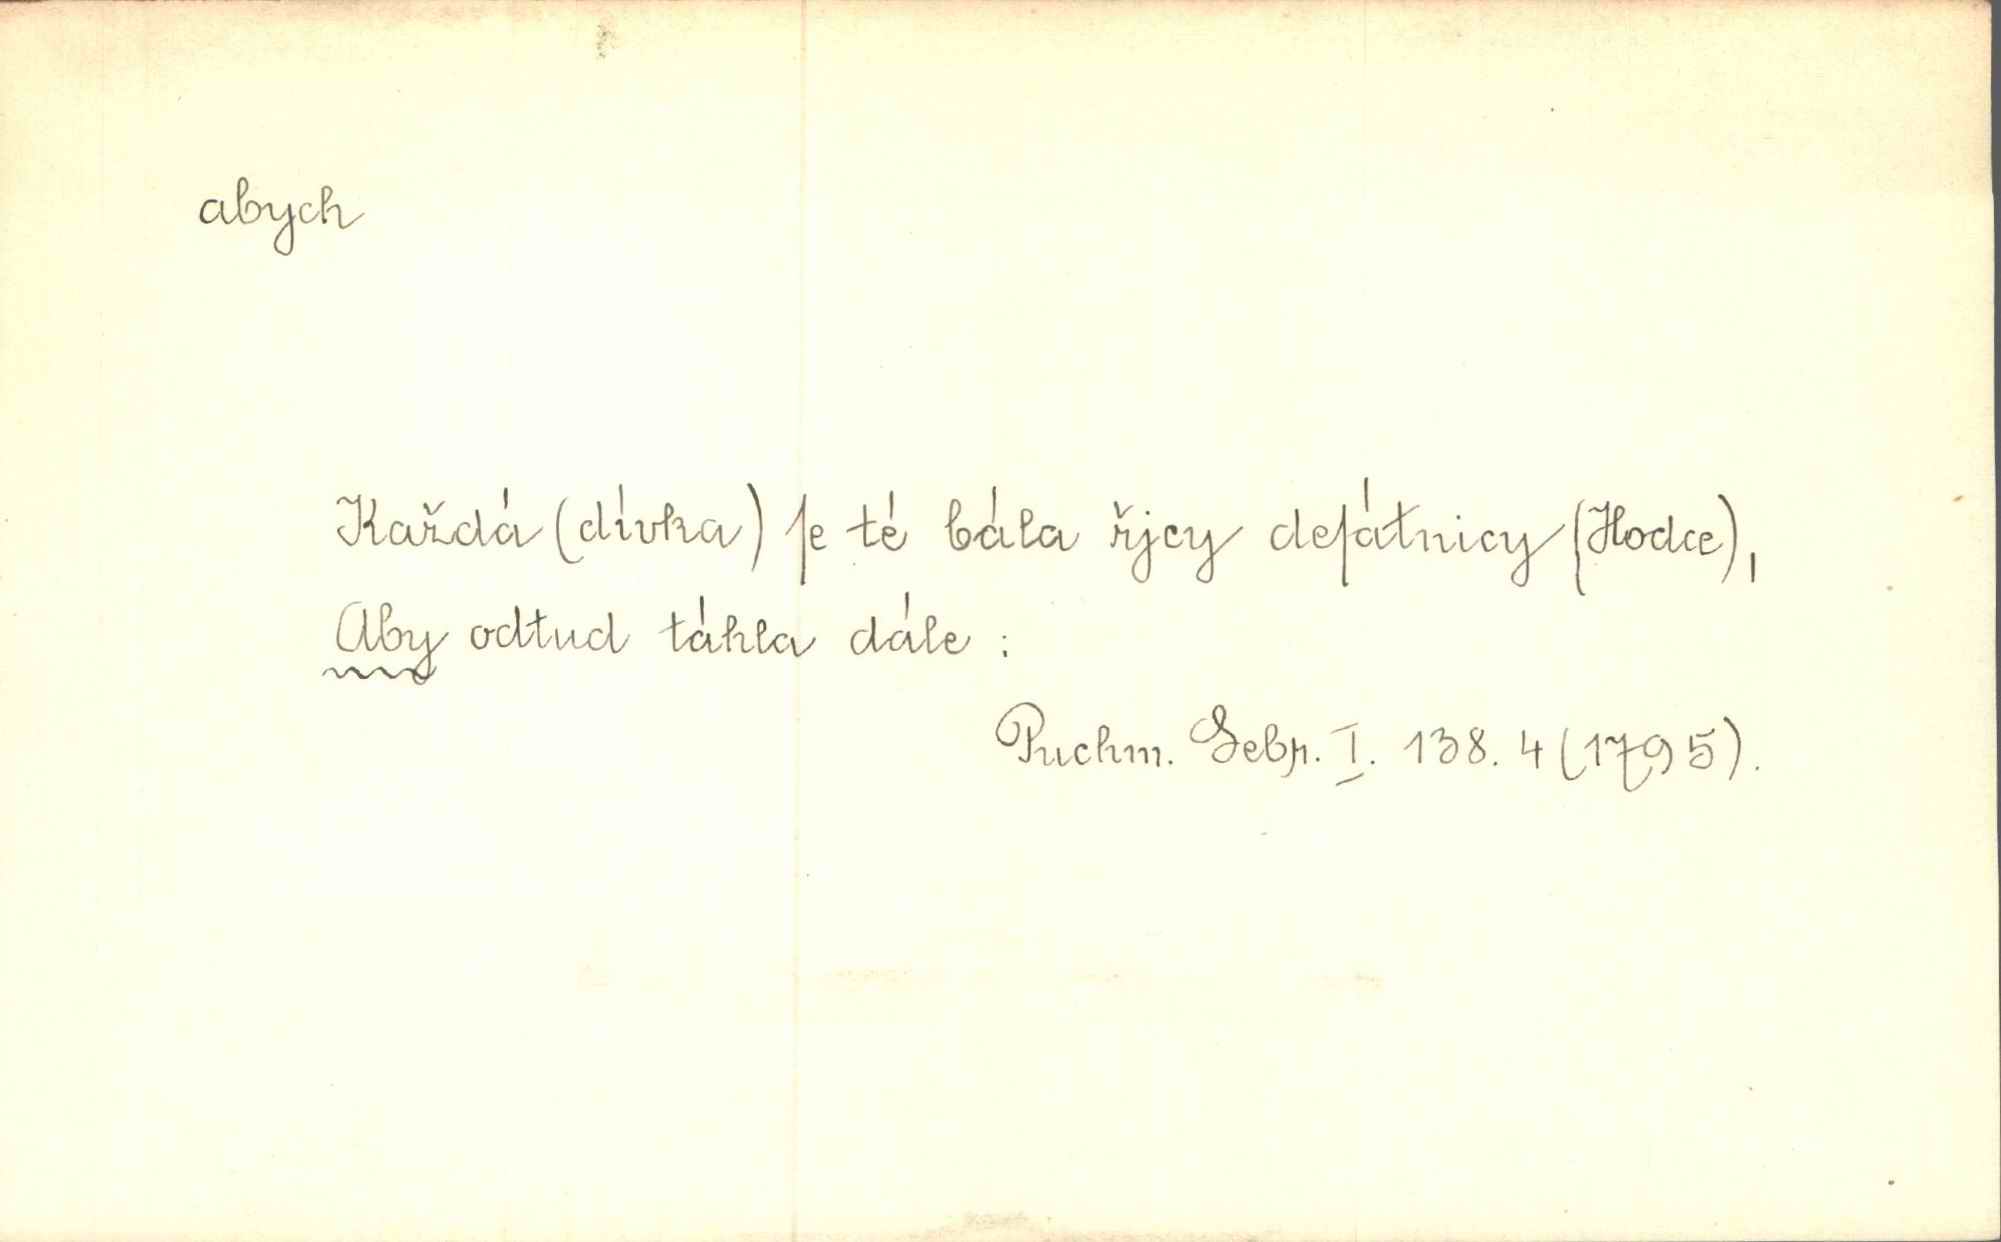 abych
Každá (dívka) ſe té bála řjcy deſátnicy (Hodce),
Aby odtud táhla dále :
Puchm. Sebr. I. 138. 4 (1795).